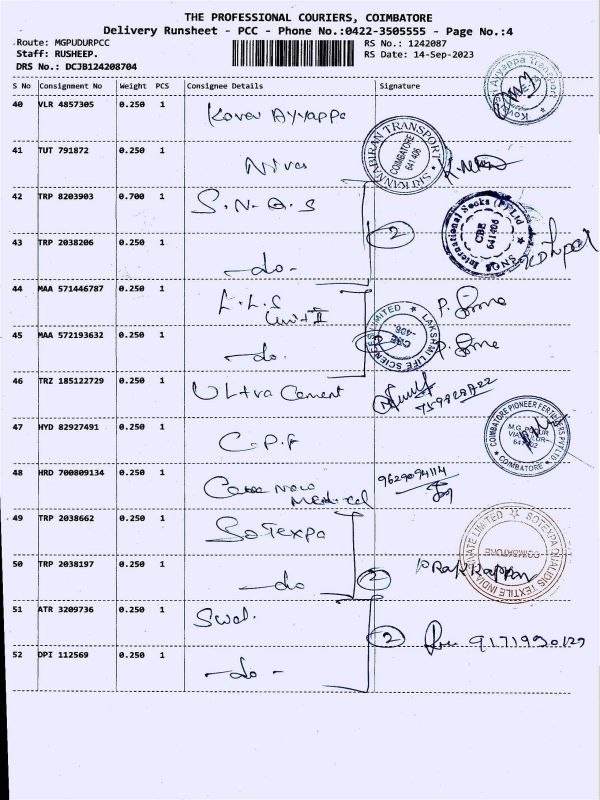 THE PROFESSIONAL COURIERS, COIMBATORE
Delivery Runsheet - PCC - Phone No.:0422-3505555 - Page No.:4
Route: MGPUDURPCC
RS No.: 1242087
Staff: RUSHEEP.
RS Date: 14-Sep-2023
DRS No.: DCJB124208704
S No Consignment No Weight PCS Consignee Details Signature
40 VLR 4857305 0.250 1 Kovai Ayyappa
41 TUT 791872 0.250 1
SRI KANNABIRAN TRANSPORT
COIMBATORE
641 406
42 TRP 8203903 0.700 1 S.N.Q.S
International Socks (P) Ltd
CBE
641406
SNQS
2
43 TRP 2038206 0.250 1 -do-
44 MAA 571446787 0.250 1 L.L.S
Unit-II
LAKSHMI LIFE SCIENCES LIMITED
CBE
45 MAA 572193632 0.250 1 -do.
46 TRZ 185122729 0.250 1 Ultra Cement
47 HYD 82927491 0.250 1 C.P.F
COIMBATORE PIONEER FERTILIZERS PVT LTD
COIMBATORE
48 HRD 700809134 0.250 1 Medical
9629094114
49 TRP 2038662 0.250 1 Sotexpa
SOTEXPA QUALIDIS TEXTILE INDIA PRIVATE LIMITED
COIMBATORE
50 TRP 2038197 0.250 1 -do
2
51 ATR 3209736 0.250 1
2
9171990127
52 DPI 112569 0.250 1 -do-